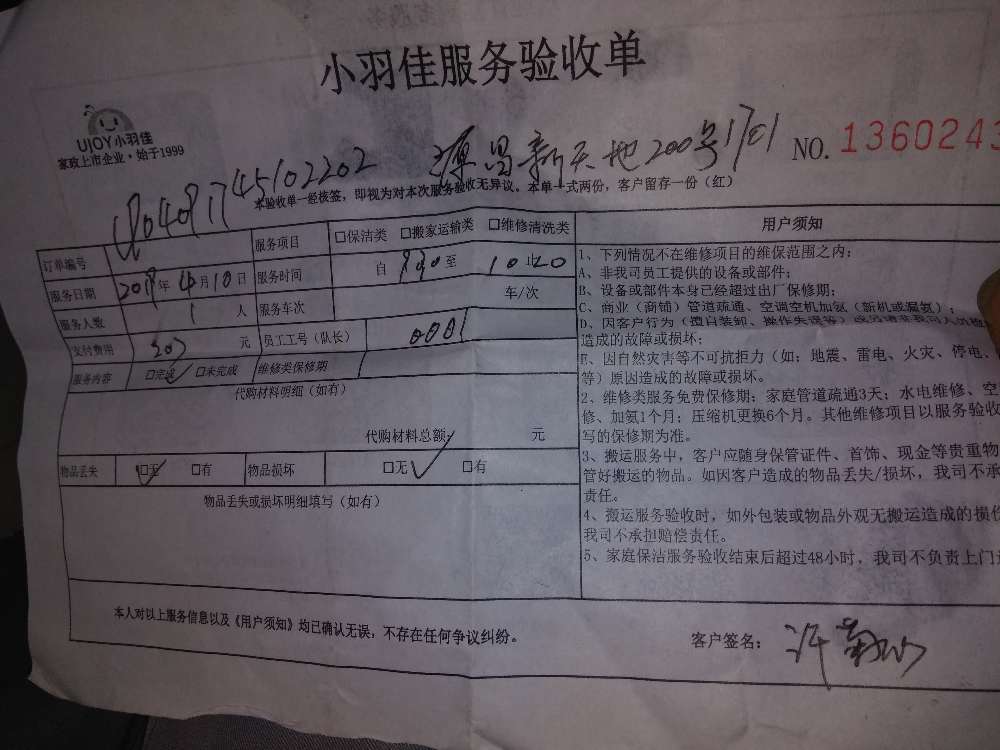 小羽佳服务验收单
UJOY小羽佳
家政上市企业·始于1999
源昌新天地200号1701
NO. 1360243
45102202
本验收单一经核签，即视为对本次服务验收无异议。本单一式两份，客户留存一份（红）
订单编号 服务项目 □保洁类 □搬家运输类 □维修清洗类
服务日期 月10日 服务时间 自 至 10
服务人数 1 人 服务车次 车/次
支付费用 元 员工工号（队长）
服务内容 □完成 □未完成 维修类保修期
代购材料明细（如有）
代购材料总额： 元
物品丢失 □无 □有 物品损坏 □无 □有
物品丢失或损坏明细填写（如有）
用户须知
1、下列情况不在维修项目的维保范围之内：
A、非我司员工提供的设备或部件；
B、设备或部件本身已经超过出厂保修期；
C、商业（商铺）管道疏通、空调空机加氨（新机或漏氨）；
D、因客户行为（擅自装卸、操作失误等）或
造成的故障或损坏；
E、因自然灾害等不可抗拒力（如：地震、雷电、火灾、停电、
等）原因造成的故障或损坏。
2、维修类服务免费保修期：家庭管道疏通3天；水电维修、空
修、加氨1个月；压缩机更换6个月。其他维修项目以服务验收
写的保修期为准。
3、搬运服务中，客户应随身保管证件、首饰、现金等贵重物
管好搬运的物品。如因客户造成的物品丢失/损坏，我司不承
责任。
4、搬运服务验收时，如外包装或物品外观无搬运造成的损伤
我司不承担赔偿责任。
5、家庭保洁服务验收结束后超过48小时，我司不负责上门
本人对以上服务信息以及《用户须知》均已确认无误，不存在任何争议纠纷。
客户签名： 许